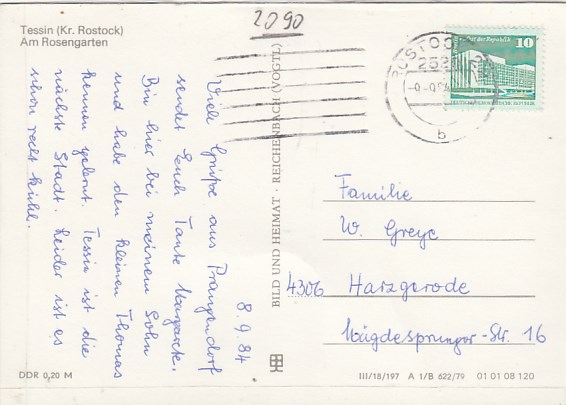 2090
Tessin (Kr. Rostock)
Am Rosengarten
8.9.84
Viele Grüße aus Prangendorf
sendet Euch Tante Margarete.
Bin hier bei meinem Sohn
und habe den kleinen Thomas
kennen gelernt. Tessin ist die
nächste Stadt. Leider ist es
schon recht kühl.
BILD UND HEIMAT · REICHENBACH (VOGTL)
ROSTOCK
252
b
der Republik
10
Familie
W. Greye
4306 Harzgerode
Mägdesprunger-Str. 16
DDR 0,20 M
III/18/197 A 1/B 622/79 01 01 08 120